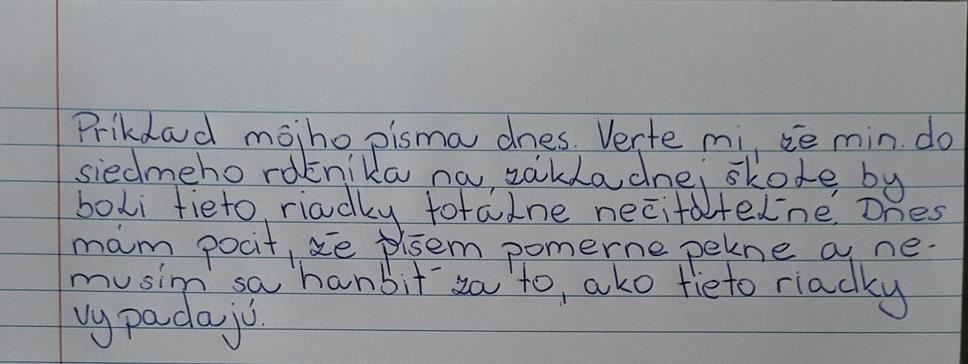 Príklad môjho písma dnes. Verte mi, že min. do
siedmeho ročníka na základnej škole by
boli tieto riadky totálne nečitateľné. Dnes
mám pocit, že píšem pomerne pekne a ne-
musím sa hanbiť za to, ako tieto riadky
vypadajú.